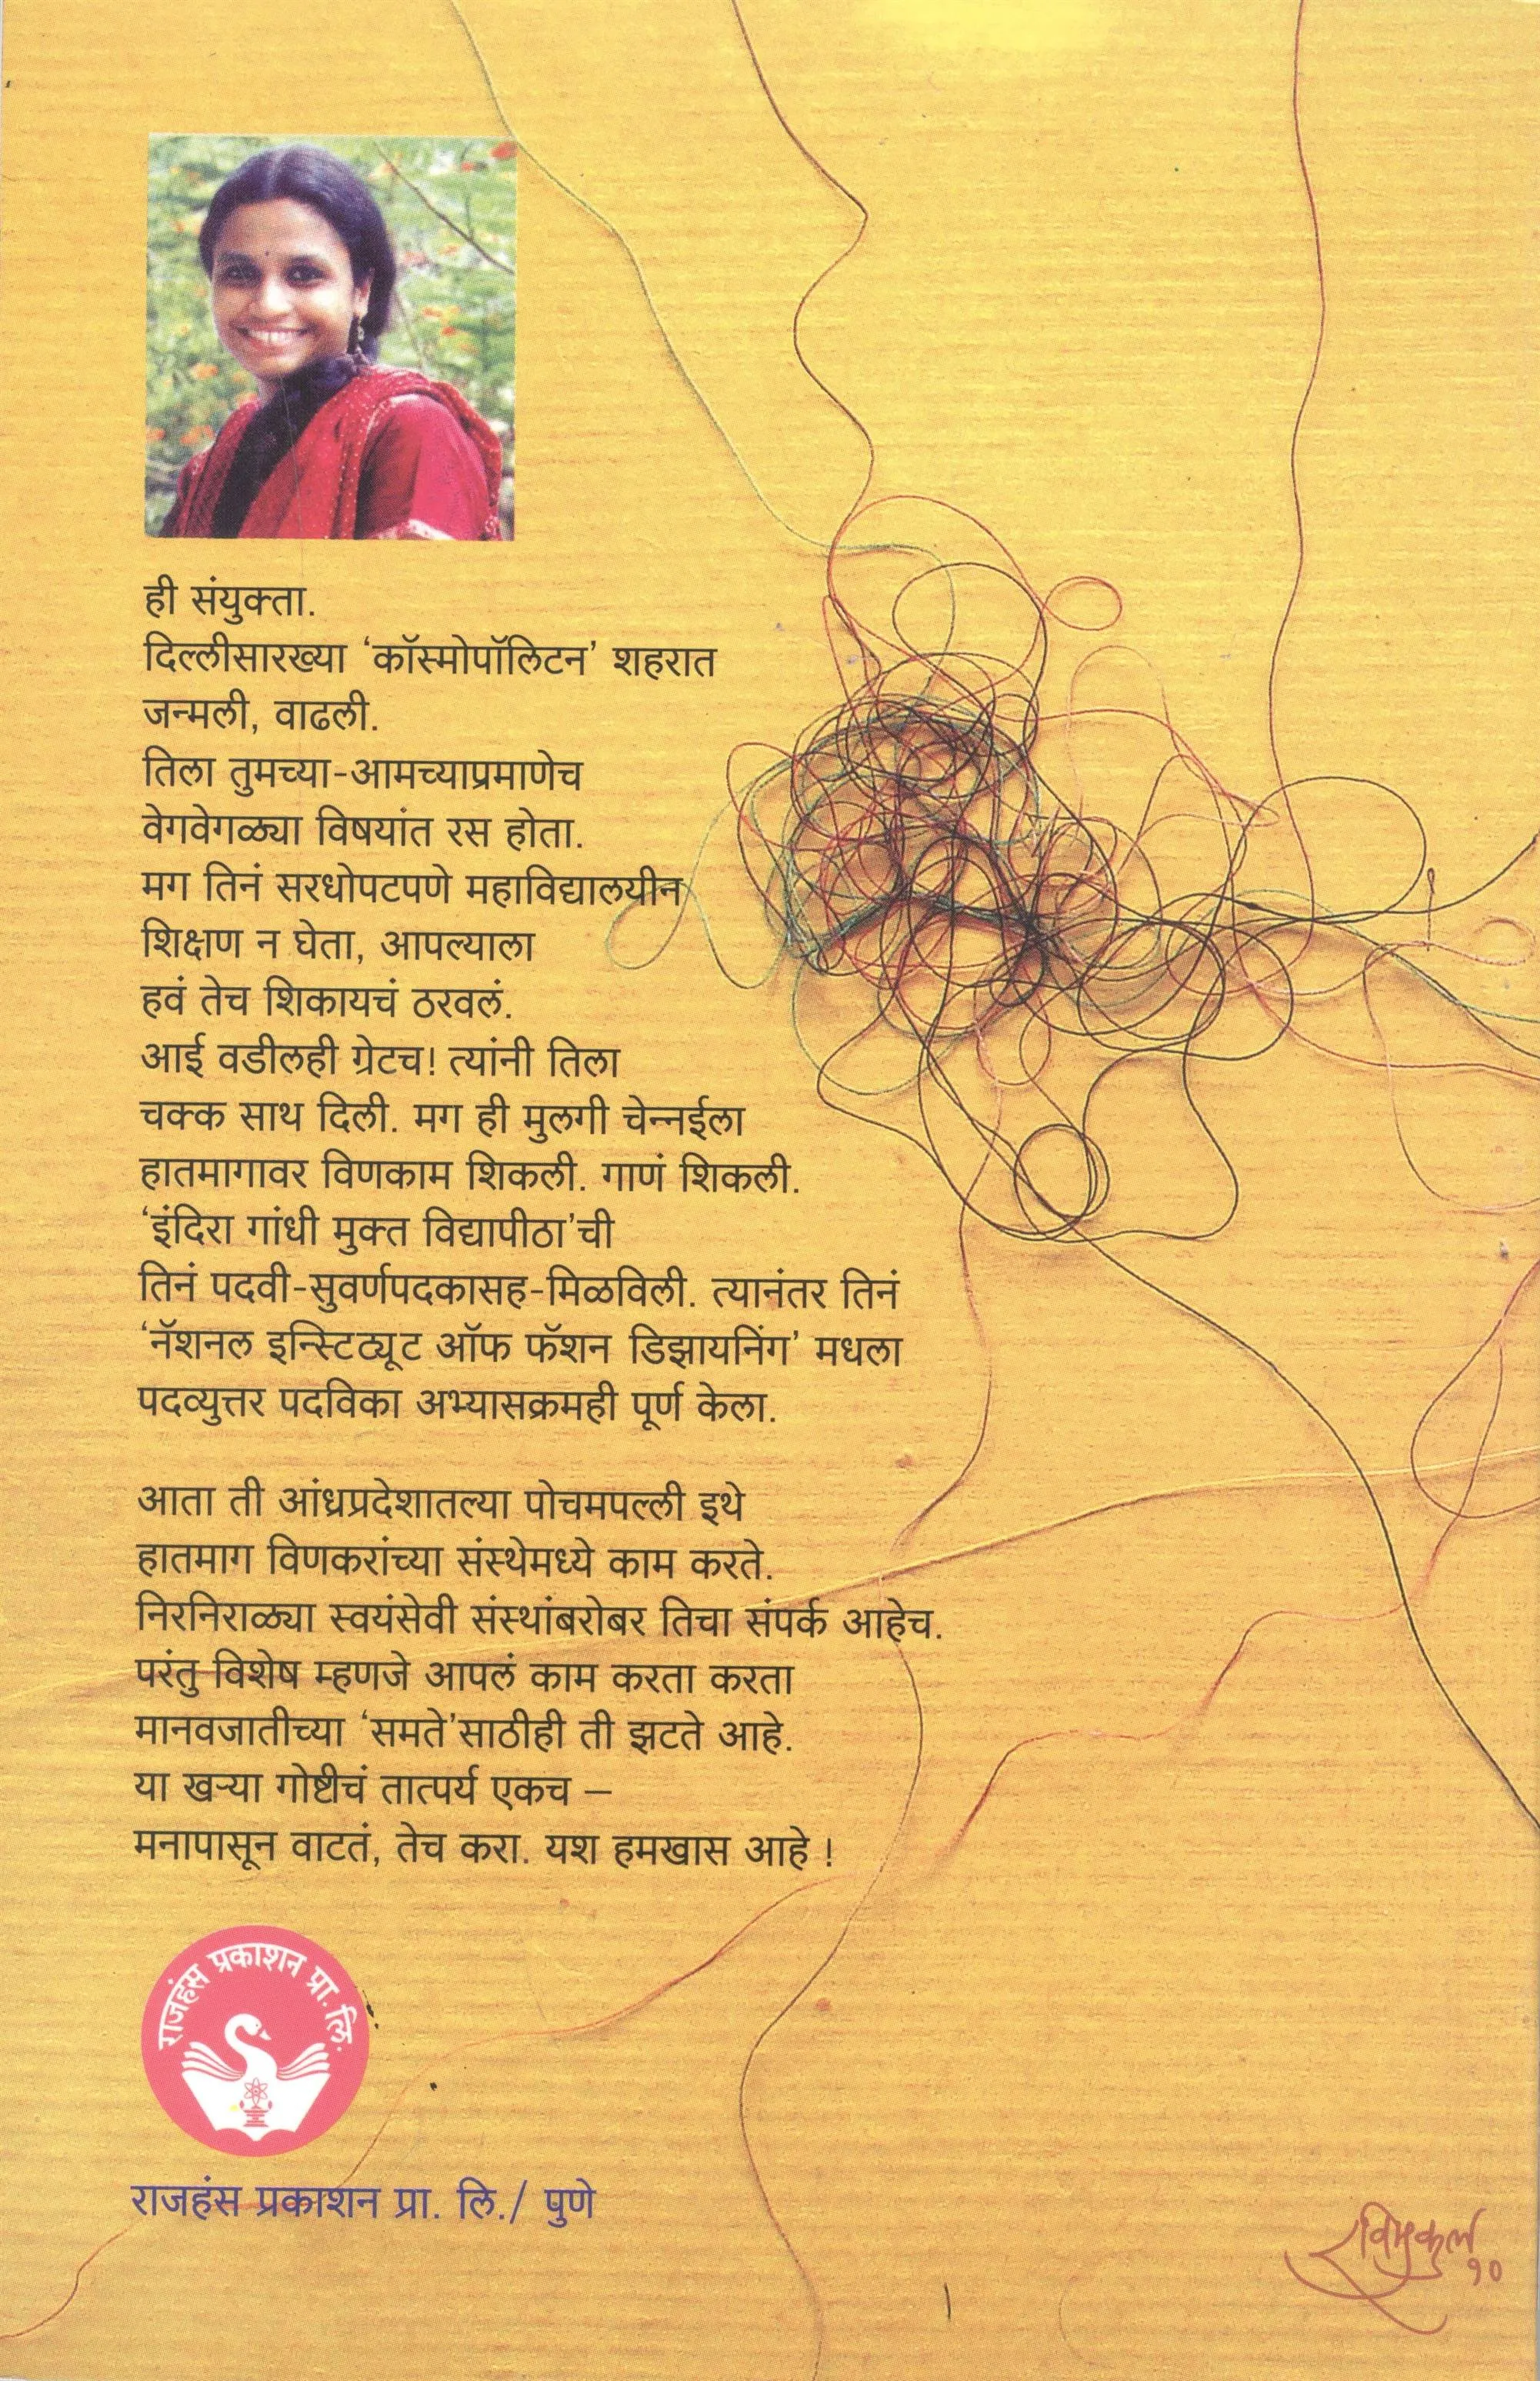 ही संयुक्ता.
दिल्लीसारख्या ‘कॉस्मोपॉलिटन’ शहरात
जन्मली, वाढली.
तिला तुमच्या-आमच्याप्रमाणेच
वेगवेगळ्या विषयांत रस होता.
मग तिनं सरधोपटपणे महाविद्यालयीन
शिक्षण न घेता, आपल्याला
हवं तेच शिकायचं ठरवलं.
आई वडीलही ग्रेटच! त्यांनी तिला
चक्क साथ दिली. मग ही मुलगी चेन्नईला
हातमागावर विणकाम शिकली. गाणं शिकली.
‘इंदिरा गांधी मुक्त विद्यापीठा’ची
तिनं पदवी-सुवर्णपदकासह-मिळविली. त्यानंतर तिनं
‘नॅशनल इन्स्टिट्यूट ऑफ फॅशन डिझायनिंग’ मधला
पदव्युत्तर पदविका अभ्यासक्रमही पूर्ण केला.
आता ती आंध्रप्रदेशातल्या पोचमपल्ली इथे
हातमाग विणकरांच्या संस्थेमध्ये काम करते.
निरनिराळ्या स्वयंसेवी संस्थांबरोबर तिचा संपर्क आहेच.
परंतु विशेष म्हणजे आपलं काम करता करता
मानवजातीच्या ‘समते’साठीही ती झटते आहे.
या खऱ्या गोष्टीचं तात्पर्य एकच –
मनापासून वाटतं, तेच करा. यश हमखास आहे !
राजहंस प्रकाशन प्रा. लि.
राजहंस प्रकाशन प्रा. लि./ पुणे
रविमुकुल
१०